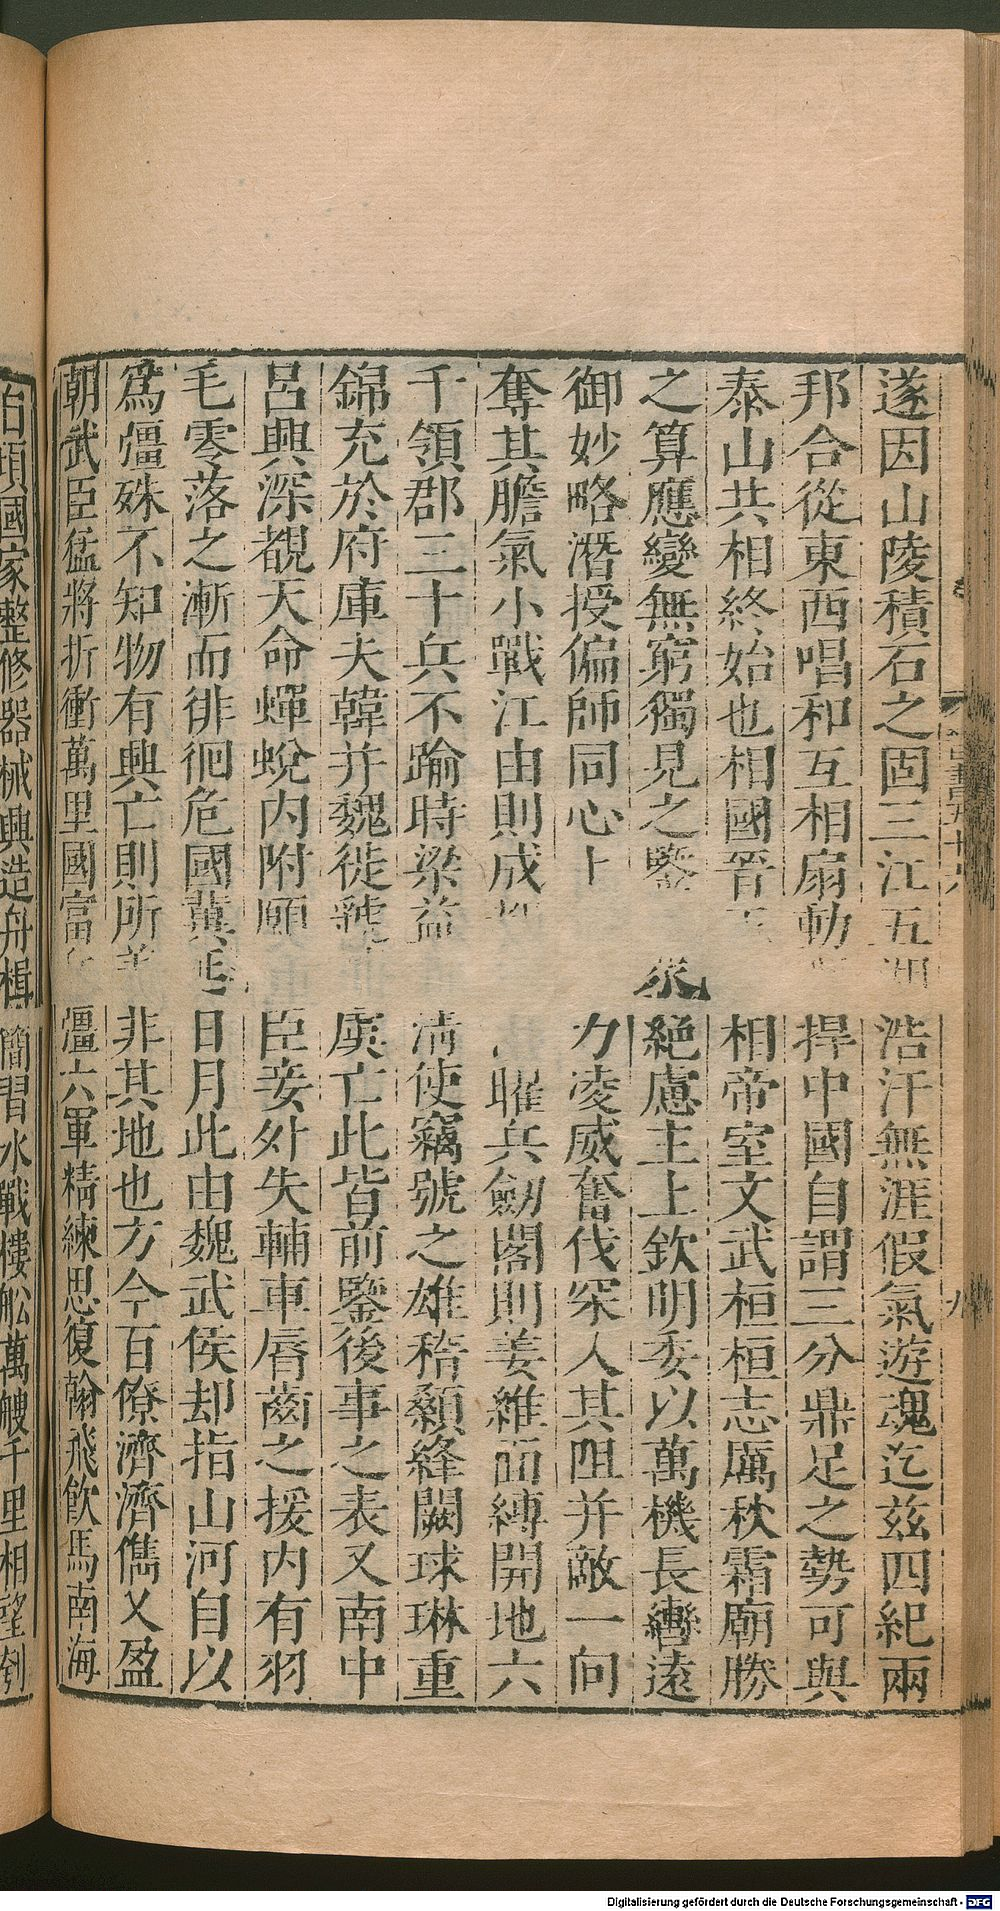 遂因山陵積石之固三江五湖浩汗無涯假氣遊魂迄茲四紀兩
邦合從東西唱和互相扇動捍中國自謂三分鼎足之勢可與
泰山共相終始也相國晋王相帝室文武桓桓志厲秋霜廟勝
之算應變無窮獨見之鑒絶慮主上欽明委以萬機長轡遠
御妙略潛授偏師同心上力凌威奮伐罙入其阻并敵一向
奪其膽氣小戰江由則成曜兵劒閣則姜維面縛開地六
千領郡三十兵不踰時梁益清使竊號之雄稽顙絳闕球琳重
錦充於府庫夫韓并魏徙虢虞亡此皆前鑒後事之表又南中
呂興深覩天命蟬蛻内附願臣妾外失輔車脣齒之援内有羽
毛零落之漸而徘徊危國冀延日月此由魏武侯却指山河自以
爲彊殊不知物有興亡則所美非其地也方今百僚濟濟儁乂盈
朝武臣猛將折衝萬里國富彊六軍精練思復翰飛飲馬南海
自頃國家整修器械興造舟楫簡習水戰樓舩萬艘千里相望刳
九
Digitalisierung gefördert durch die Deutsche Forschungsgemeinschaft - DFG